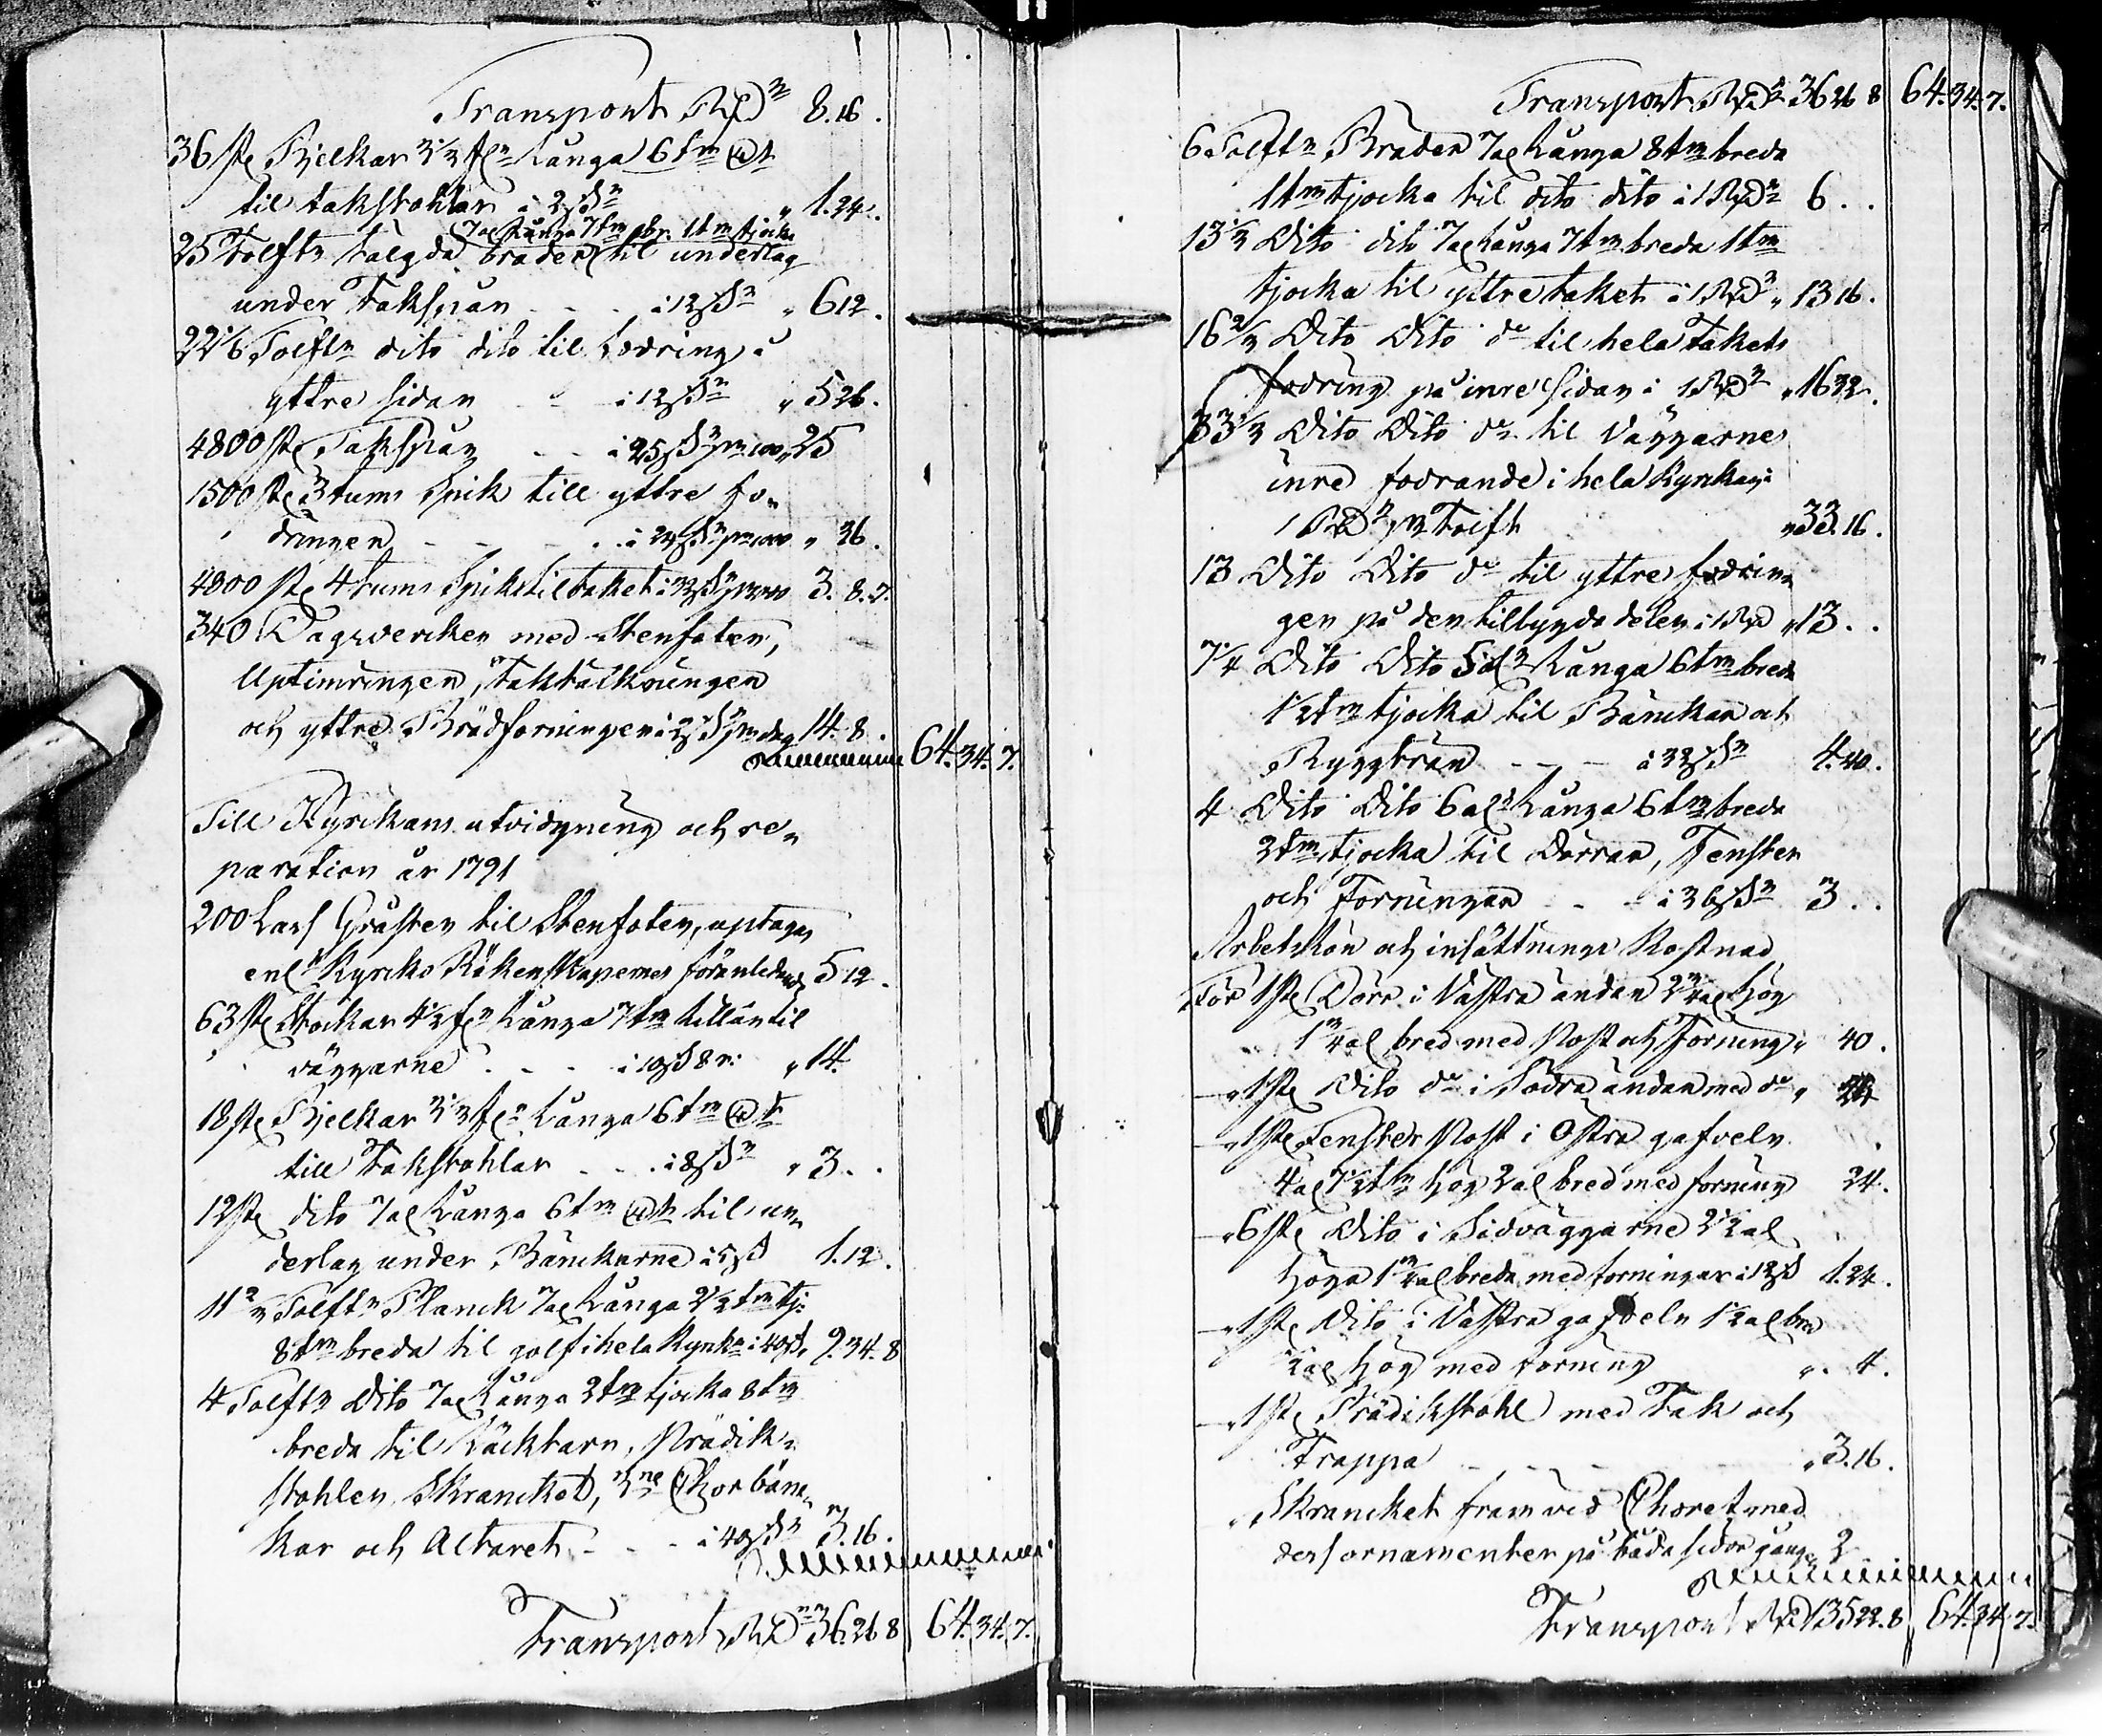 Transport RD 8. 16.
36 st. Bjelkar 3 1/3 fn Långa 6 tm
til takstohlar à 2 sk " 1. 24.
7 al Långa 7 tm br. 1 tm tjocke
25 Tolfter talgda bräder til underlag
under Takspån - - - à 12 sk " 6 12.
22 1/6 Tolftr dito dito til fodring å
yttre sidan - - à 12 sk " 5 26.
4800 st. Takspån - - à 25 sk pr 100 " 25
1500 st. 3 tums Spik till yttre fo=
dringen - - - - à 24 sk pr 1000 " 36.
4800 st. 4 tums Spik til taket à 32 sk pr 1000 3. 8. 7.
340 Dagsvercken med Stenfoten,
Uptimringen, Taktäckningen
och yttre Brädforningen à 2 sk pr dag 14. 8.
64. 34. 7.
Till Kyrckans utvidgning och re=
paration år 1791
200 Lass Gråsten til Stenfoten, uptagen
enl. Kyrcko Räkenskapernes föranledning 5 12.
63 st. Stockar 4 1/2 fn Långa 7 tm til
väggarne - - - à 10 sk 8 r: " 14.
18 st. Bjelkar 3 1/3 fn Långa 6 tm
till Takstohlar - - - à 8 sk " 3. .
12 st. dito 7 al Långa 6 tm til un=
derlag under Bänckarne à 5 sk 1. 12.
11 2/3 Tolftr Planck 7 al Långa 2 1/2 tm tj:
8 tm breda til golf i hela Kyrkn à 40 sk 9. 34. 8
4 Tolftr Dito 7 al Långa 2 tm tjocka 8 tm
breda til Läcktarn, Prädik=
stohlen, Skrancket, 3ne Chor bänc=
kar och Altaret - - - à 40 sk 3. 16.
Transport RD 36. 26 8 64. 34. 7.
Transport RD 36 26 8 64. 34. 7.
6 Tolftr Bräder 7 al Långa 8 tm breda
1 tm tjocka til dito dito à 1 RD 6 . .
13 1/3 Dito dito 7 al Långa 7 tm breda 1 tm
tjocka til yttre taket à 1 RD " 13 16.
16 2/3 Dito Dito do til hela Takets
fodring på inre sidan à 1 RD " 16 32.
33 1/3 Dito Dito do til Väggarnes
inre fodrande i hela Kyrkan à
1 RD pr Tolft " 33. 16.
13 Dito Dito do til yttre fodrin=
gen på den tilbygda delen à 1 RD " 13 . .
7 1/4 Dito Dito 5 al Långa 6 tm breda
1 1/2 tm tjocka til Bänckar och
Ryggbrän - - - à 32 sk 4. 40.
4 Dito Dito 6 al Långa 6 tm breda
2 tm tjocka til Dörrar, Fenster
och Forningar - - à 36 sk 3 . .
Arbetslön och insättnings Kostnad
För 1 st. Dörr i Västra ändan 2 3/4 al hög
1 3/4 al bred med Post och Forning " 40.
—" 1 st. Dito do i Södra ändan med do "
—" 1 st. Fenster Post i Östra gafveln
4 al 7 1/2 tm hög 2 al bred med forning 24.
—" 6 st. Dito i Sidväggarne 2 1/2 al
höga 1 3/4 al breda med forningar à 12 sk 1. 24.
—" 1 st. Dito i Västra gafveln 1 1/2 al bre
1/2 al hög med forning " 4.
—" 1 st. Prädikstohl med Tak och
Trappa - - - " 3. 16.
" Skrancket fram vid Choret med
dess ornamenter på båda sidor gången 2
Transport RD 135 22. 8 64. 34. 7.